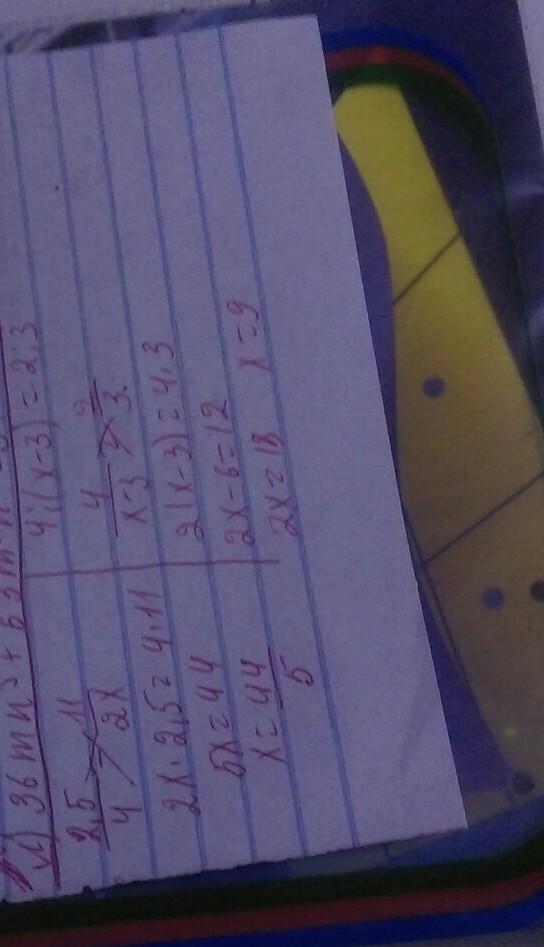 л) 36mn³ +
2,5/4 = 11/2x
2x·2,5=4·11
5x=44
x=44/5
4:(x-3)=2:3
4/x-3 = 2/3
2(x-3)=4·3
2x-6=12
2x=18 x=9